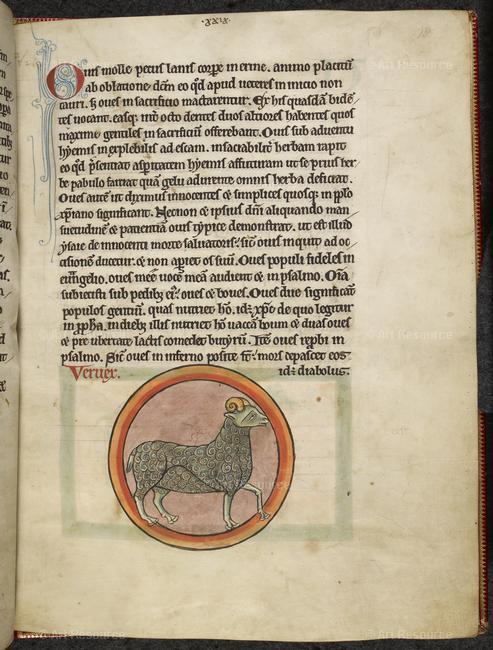 .xxix.
Ouis molle pecus lanis corpe inerme. animo placitu
ab oblatione dcm eo qd apud ueteres in inicio non
tauri. s; oues in sacrificio mactarentur. Ex his quasda bide
tes uocant. easq; into octo dentes duos altiores habentes quos
maxime gentiles in sacrificiu offerebant. Ouis sub aduentu
hyemis inexplebilis ad escam. insaciabilit herbam rapit
eo qd psentiat asperitatem hyemis affuturam ut se prius her
be pabulo farciat qua gelu adurente omnis herba deficiat.
Oues aute innocentes et simplices quosq; in pplo
xpiano significant. Necnon et ipsius dni aliquando man
suetudine et patientia ouis typice demonstrat. ut est illud
ysaie de innocenti morte saluatoris. sic ouis inquit ad oc
cisione ducetur. et non apiet os suu. Oues populi fideles in
euangelio. oues mee uoce mea audiunt et in psalmo. Oia
subiecisti sub pedib; ei. oues et boues. Oues due significant
populos gentiu. quas nutriet ho. id xpc de quo legitur
in ppha. in dieb; illis nutriet ho uacca boum et duas oues
et pre ubertate lactis comedet butyru. Ite oues reprbi in
psalmo. Sic oues in inferno posite st. mors depascet eos
id diabolus.
Veruex.